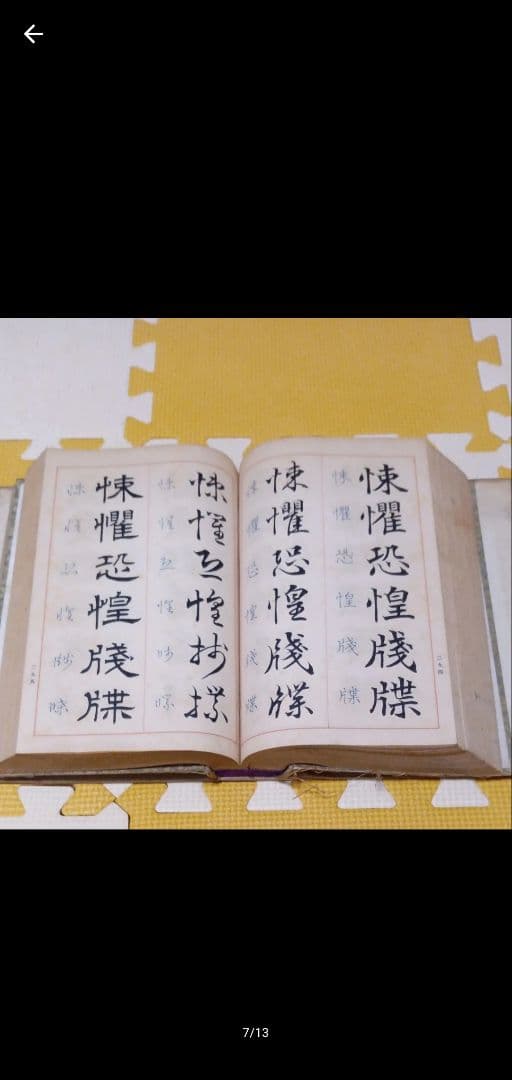 二九四
悚懼恐惶牋牒
悚懼恐惶牋牒
悚懼恐惶牋牒
悚懼恐惶牋牒
悚懼恐惶牋牒
悚懼恐惶牋牒
二九五
7/13